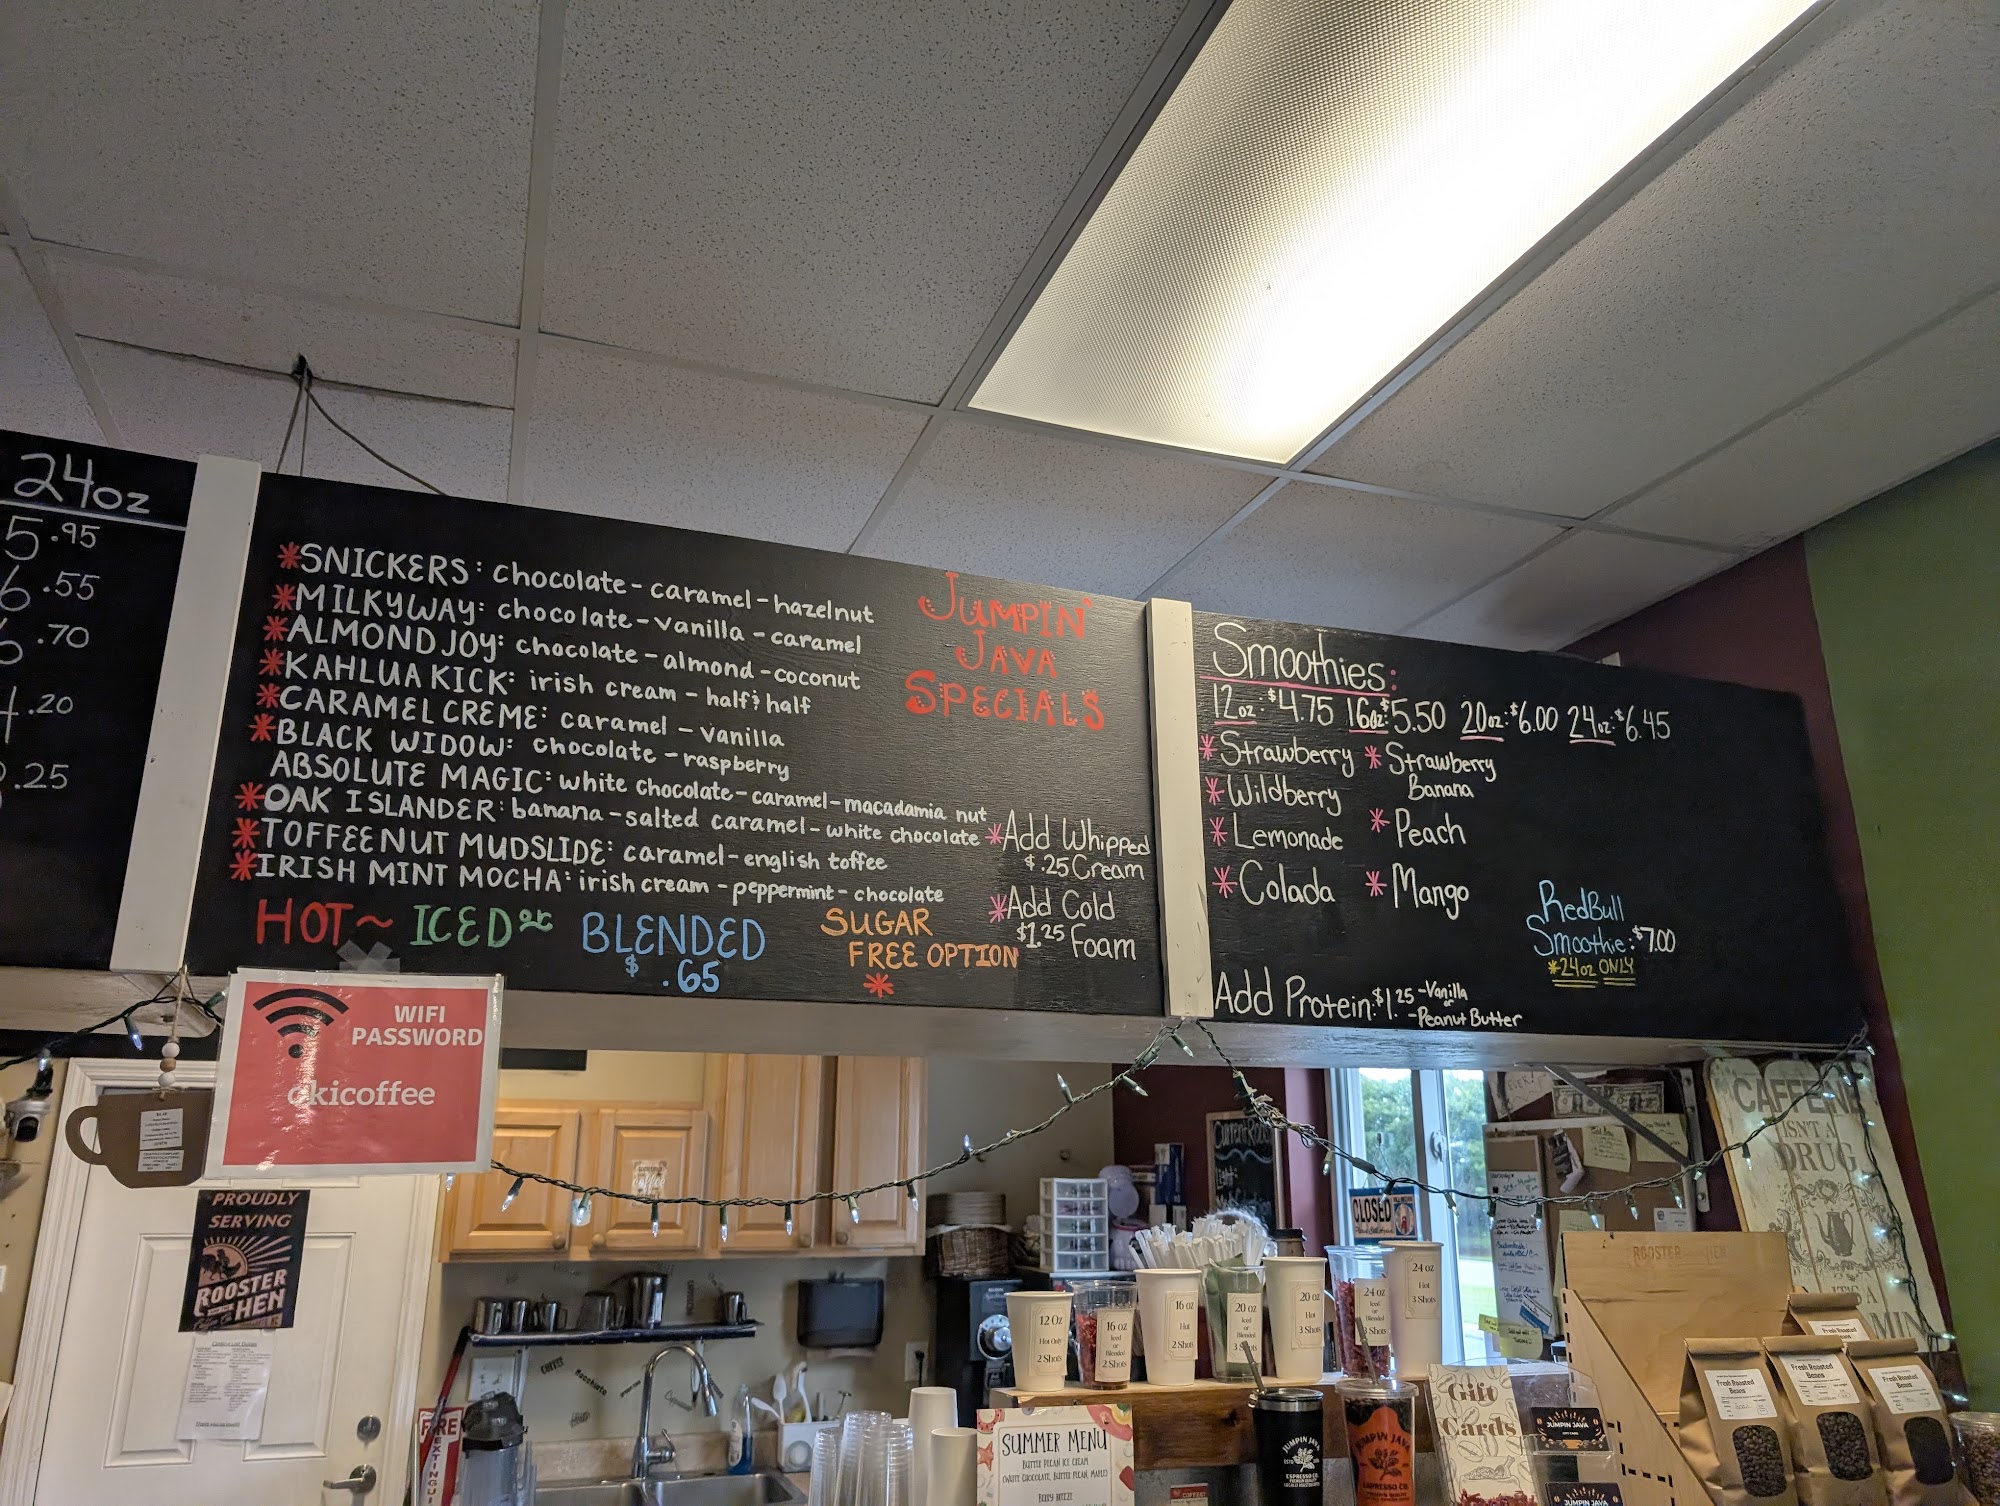 24oz
5.95
6.55
6.70
.20
.25
*SNICKERS: chocolate-caramel-hazelnut
*MILKYWAY: chocolate-vanilla-caramel
*ALMOND JOY: chocolate-almond-coconut
*KAHLUA KICK: irish cream-half & half
*CARAMEL CREME: caramel-vanilla
*BLACK WIDOW: chocolate-raspberry
ABSOLUTE MAGIC: white chocolate-caramel-macadamia nut
*OAK ISLANDER: banana-salted caramel-white chocolate
*TOFFEENUT MUDSLIDE: caramel-english toffee
*IRISH MINT MOCHA: irish cream-peppermint-chocolate
HOT~ ICED or BLENDED
$.65
SUGAR
FREE OPTION
*
JUMPIN'
JAVA
SPECIALS
*Add Whipped
$.25 Cream
*Add Cold
$1.25 Foam
Smoothies:
12oz:$4.75 16oz:$5.50 20oz:$6.00 24oz:$6.45
*Strawberry *Strawberry
Banana
*Wildberry
*Lemonade *Peach
*Colada *Mango
RedBull
Smoothie:$7.00
*24oz ONLY
Add Protein:$1.25-Vanilla
or
-Peanut Butter
WIFI
PASSWORD
okicoffee
PROUDLY
SERVING
ROOSTER
AND THE
HEN
FIRE
EXTINGUI
CLOSED
CAFFEINE
ISN'T A
DRUG
IT'S A
ROOSTER HEN
12 Oz
Hot Only
2 Shots
16 oz
Iced
or
Blended
2 Shots
16 oz
Hot
2 Shots
20 oz
Iced
or
Blended
20 oz
Hot
3 Shots
24 oz
Iced
or
Blended
3 Shots
24 oz
Hot
3 Shots
SUMMER MENU
BUTTER PECAN ICE CREAM
(WHITE CHOCOLATE, BUTTER PECAN, MAPLE)
BERRY BREEZE
JUMPIN JAVA
ESPRESSO CO.
JUMPIN JAVA
ESPRESSO CO.
Gift
Cards
JUMPIN JAVA
JUMPIN JAVA
Fresh Roasted
Beans
Fresh Roasted
Beans
Fresh Roasted
Beans
Fresh Roasted